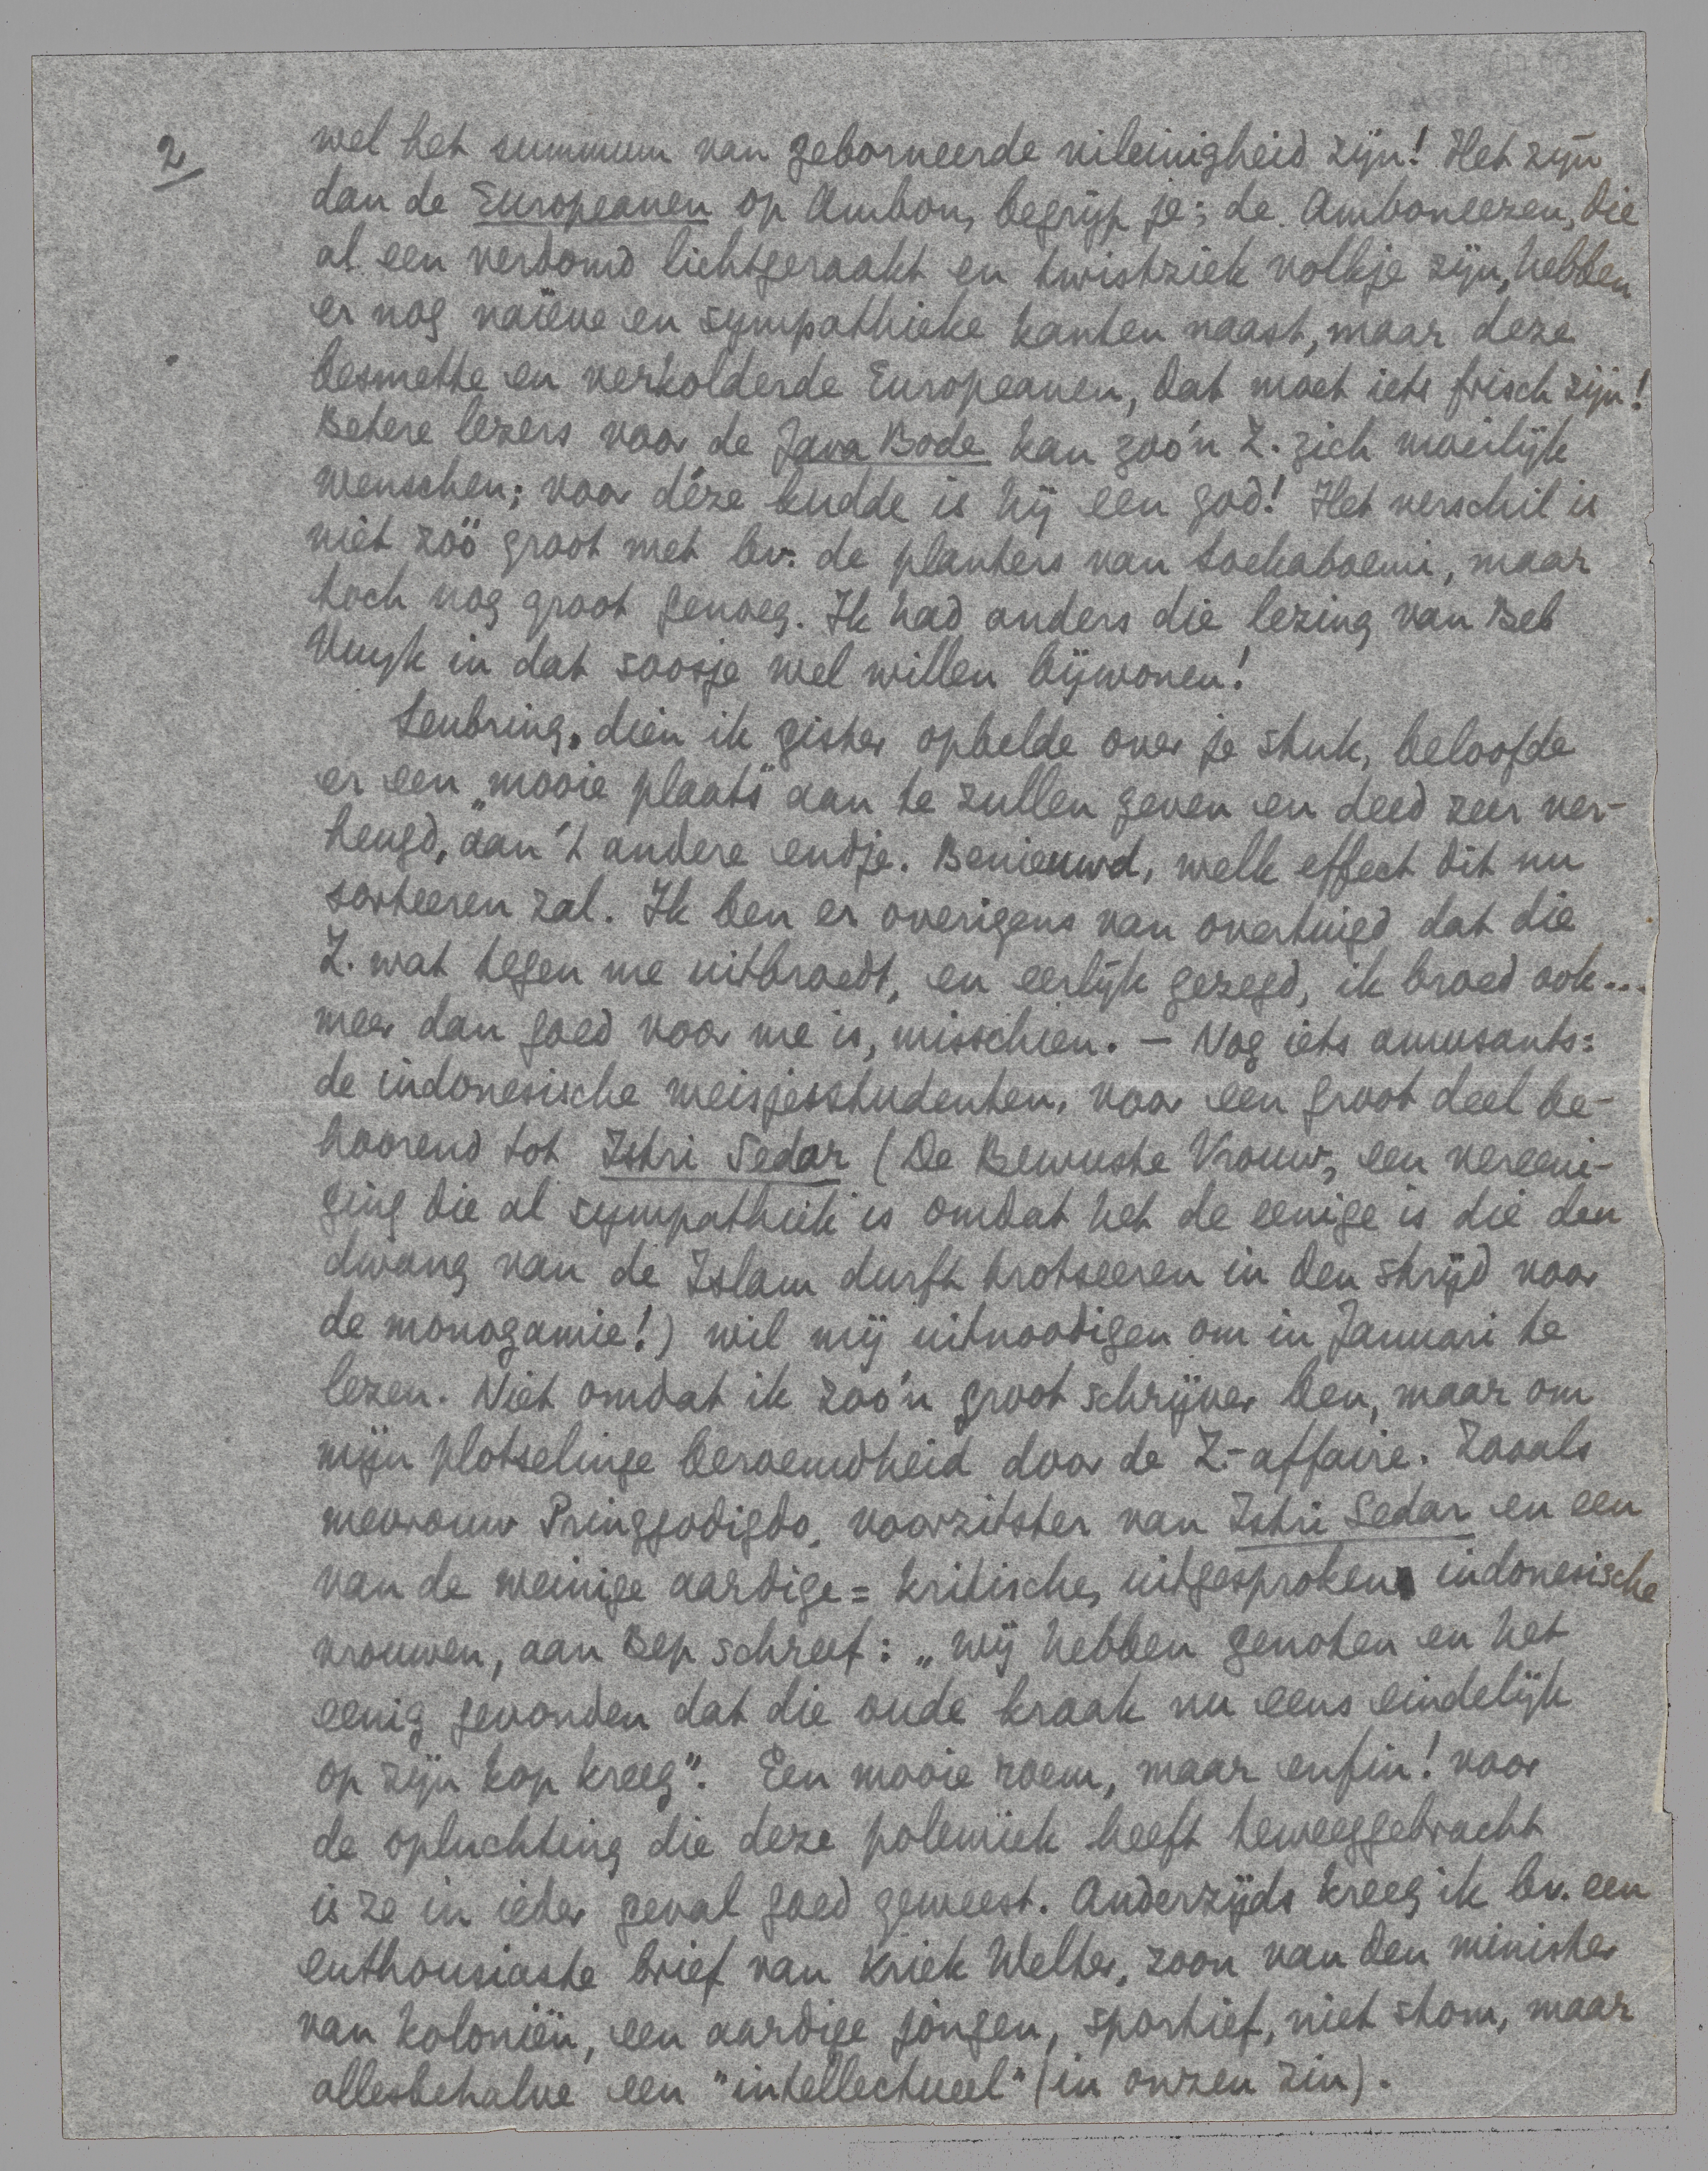 2/
wel het summum van geborneerde vileinigheid zijn! Het zijn
dan de Europeanen op Ambon, begrijp je; de Amboneezen, die
al een verdomd lichtgeraakt en twistziek volkje zijn, hebben
er nog naïeve en sympathieke kanten naast, maar deze
besmette en verkolderde Europeanen, dat moet iets frisch zijn!
Betere lezers voor de Java Bode kan zoo'n Z. zich moeilijk
wenschen; voor déze kudde is hij een god! Het verschil is
niet zóó groot met bv. de planters van Soekaboemi, maar
toch nog groot genoeg. Ik had anders die lezing van Beb
Vuyk in dat soosje wel willen bijwonen!
Leubring, dien ik gister opbelde over je stuk, beloofde
er een „mooie plaats" aan te zullen geven en deed zeer ver-
heugd, aan 't andere endje. Benieuwd, welk effect dit nu
sorteeren zal. Ik ben er overigens van overtuigd dat die
Z. wat tegen me uitbroedt, en eerlijk gezegd, ik broed ook...
meer dan goed voor me is, misschien. — Nog iets amusants:
de indonesische meisjesstudenten, voor een groot deel be-
hoorend tot Istri Sedar (De Bewuste Vrouw, een vereeni-
ging die al sympathiek is omdat het de eenige is die den
dwang van de Islam durft trotseeren in den strijd voor
de monogamie!) wil mij uitnoodigen om in Januari te
lezen. Niet omdat ik zoo'n groot schrijver ben, maar om
mijn plotselinge beroemdheid door de Z.-affaire. Zooals
mevrouw Pringgodigdo, voorzitster van Istri Sedar en een
van de weinige aardige = kritische, uitgesproken indonesische
vrouwen, aan Bep schreef: „wij hebben genoten en het
eenig gevonden dat die oude kraak nu eens eindelijk
op zijn kop kreeg". Een mooie roem, maar enfin! voor
de opluchting die deze polemiek heeft teweeggebracht
is ze in ieder geval goed geweest. Anderzijds kreeg ik bv. een
enthousiaste brief van Kriek Welter, zoon van den minister
van koloniën, een aardige jongen, sportief, niet stom, maar
allesbehalve een "intellectueel" (in onzen zin).